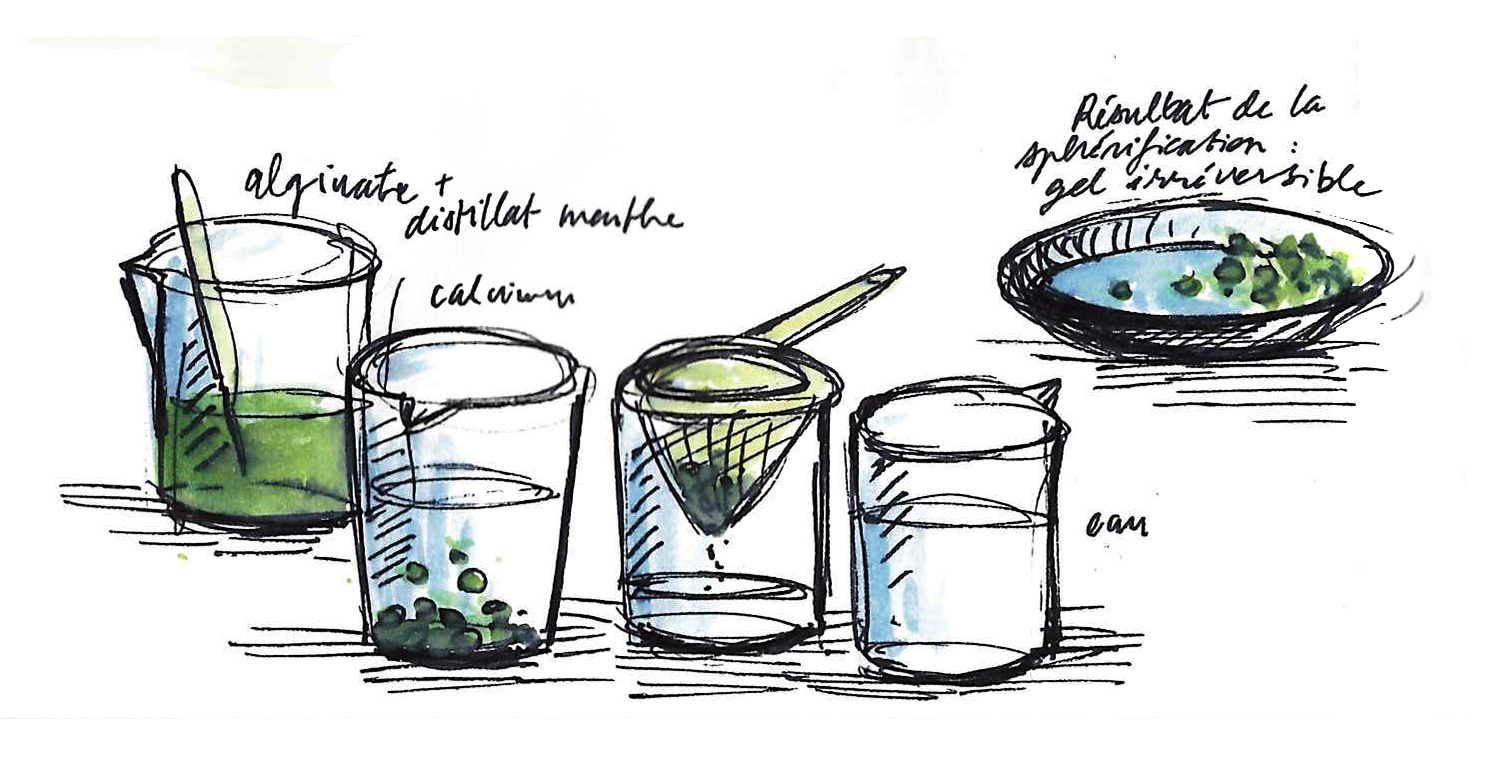 alginate +
distillat menthe
calcium
Résultat de la
sphérification :
gel irréversible
eau